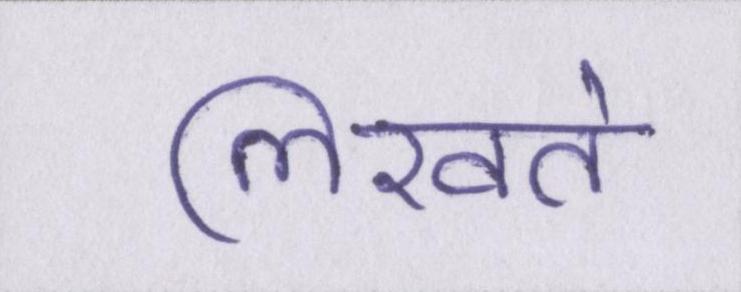 लिखते